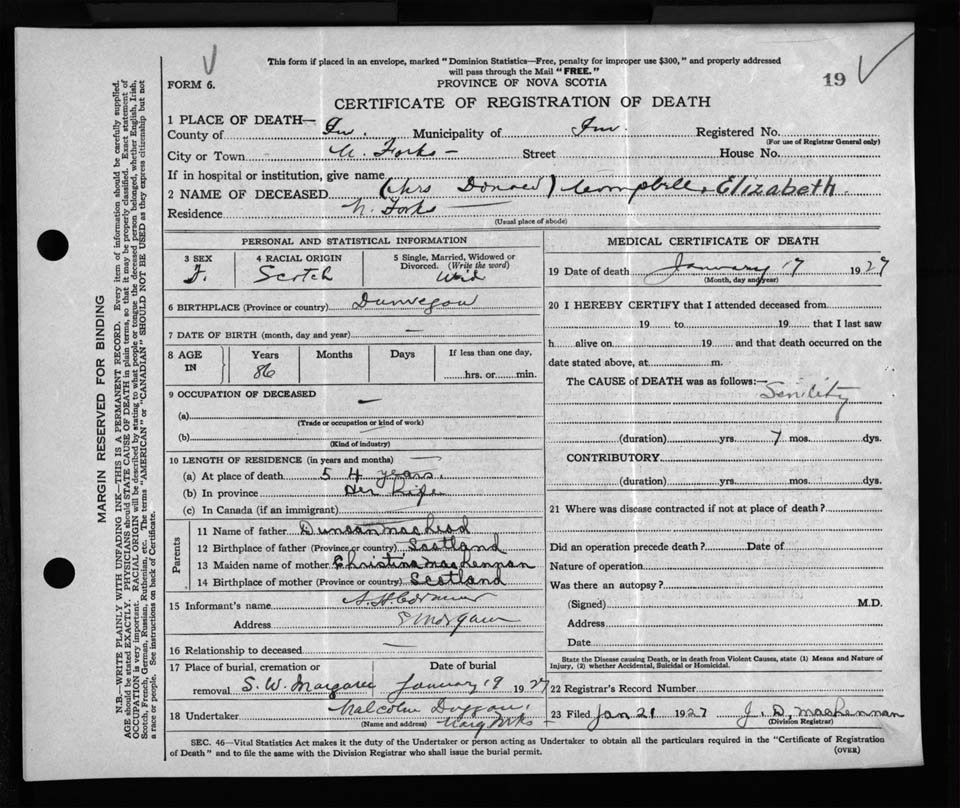 This form if placed in an envelope, marked "Dominion Statistics—Free, penalty for improper use $300," and properly addressed
will pass through the Mail "FREE."
FORM 6.
PROVINCE OF NOVA SCOTIA
19
CERTIFICATE OF REGISTRATION OF DEATH
1 PLACE OF DEATH—
County of Inv. Municipality of Inv. Registered No.
(For use of Registrar General only)
City or Town Forks — Street House No.
If in hospital or institution, give name
2 NAME OF DECEASED (Mrs Donald) Campbell, Elizabeth
Residence Forks
(Usual place of abode)
PERSONAL AND STATISTICAL INFORMATION
3 SEX 4 RACIAL ORIGIN 5 Single, Married, Widowed or Divorced. (Write the word)
F. Scotch Wid
6 BIRTHPLACE (Province or country) Dunvegan
7 DATE OF BIRTH (month, day and year) —
8 AGE IN Years Months Days If less than one day,
86 hrs. or min.
9 OCCUPATION OF DECEASED —
(a)
(Trade or occupation or kind of work)
(b)
(Kind of industry)
10 LENGTH OF RESIDENCE (in years and months) —
(a) At place of death 54 years.
(b) In province Her Life
(c) In Canada (if an immigrant)
Parents
11 Name of father Duncan MacLeod
12 Birthplace of father (Province or country) Scotland
13 Maiden name of mother Christina MacLennan
14 Birthplace of mother (Province or country) Scotland
15 Informant's name
Address
16 Relationship to deceased —
17 Place of burial, cremation or Date of burial
removal S. W. Margaree January 19 1927
18 Undertaker Malcolm
(Name and address) Marg Forks
MEDICAL CERTIFICATE OF DEATH
19 Date of death January 17 1927
(Month, day and year)
20 I HEREBY CERTIFY that I attended deceased from
19 to 19 that I last saw
h alive on 19 and that death occurred on the
date stated above, at m.
The CAUSE of DEATH was as follows:—
Senility
(duration) yrs. 7 mos. dys.
CONTRIBUTORY
(duration) yrs. mos. dys.
21 Where was disease contracted if not at place of death?
Did an operation precede death? Date of
Nature of operation
Was there an autopsy?
(Signed) M.D.
Address
Date
State the Disease causing Death, or in death from Violent Causes, state (1) Means and Nature of
Injury, (2) whether Accidental, Suicidal or Homicidal.
22 Registrar's Record Number
23 Filed Jan 21 1927 J. D. MacLennan
(Division Registrar)
SEC. 46—Vital Statistics Act makes it the duty of the Undertaker or person acting as Undertaker to obtain all the particulars required in the "Certificate of Registration
of Death" and to file the same with the Division Registrar who shall issue the burial permit.
(OVER)
MARGIN RESERVED FOR BINDING
N.B.—WRITE PLAINLY WITH UNFADING INK—THIS IS A PERMANENT RECORD. Every item of information should be carefully supplied.
AGE should be stated EXACTLY. PHYSICIANS should STATE CAUSE OF DEATH in plain terms, so that it may be properly classified. Exact statement of
OCCUPATION is very important. RACIAL ORIGIN will be described by stating to what people or tongue the deceased person belonged, whether English, Irish,
Scotch, French, German, Russian, Ruthenian, etc. The terms "AMERICAN" or "CANADIAN" SHOULD NOT BE USED as they express citizenship but not
a race or people. See instructions on back of Certificate.